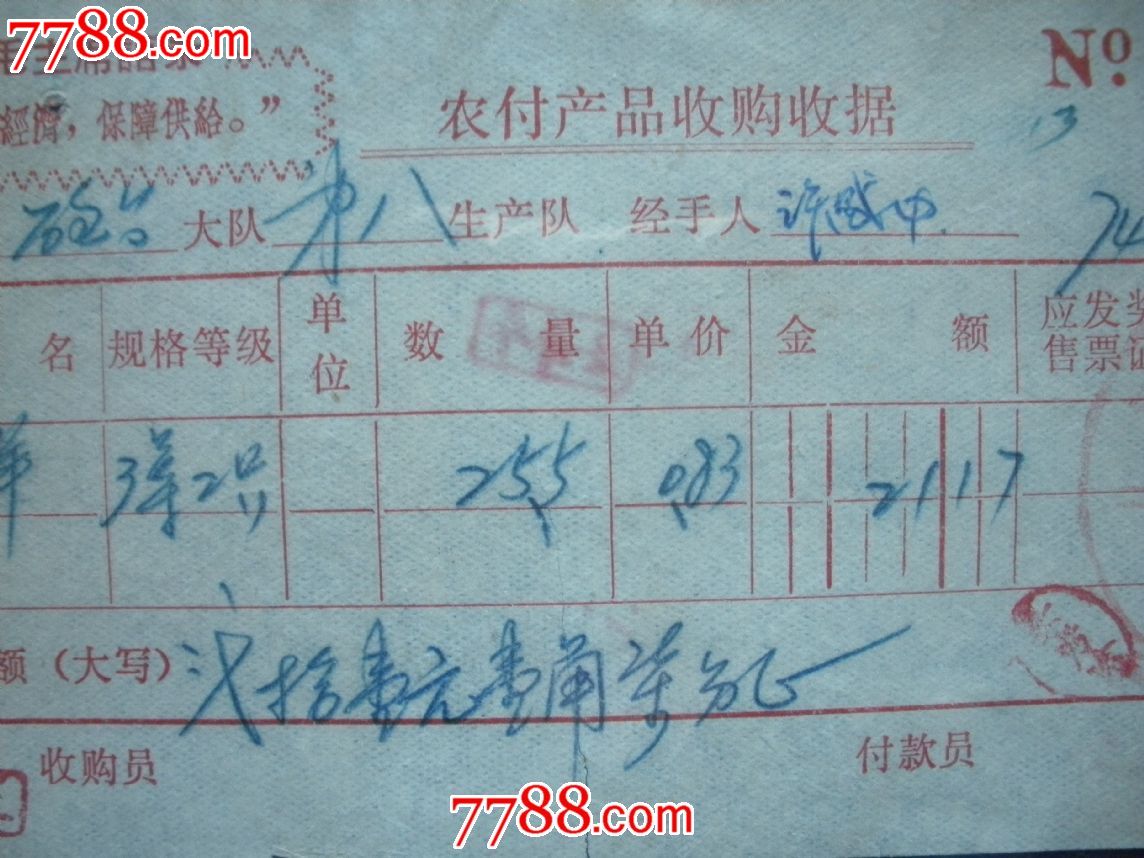 7788.com
毛主席語录
經濟，保障供給。”
农付产品收购收据
No
13
大队 第八 生产队 经手人 许成中 74
名 规格等级 单位 数量 单价 金额 应发奖售票证
羊 2级 255 083 2117
额（大写） 贰拾壹元壹角柒分正
收购员 付款员
7788.com